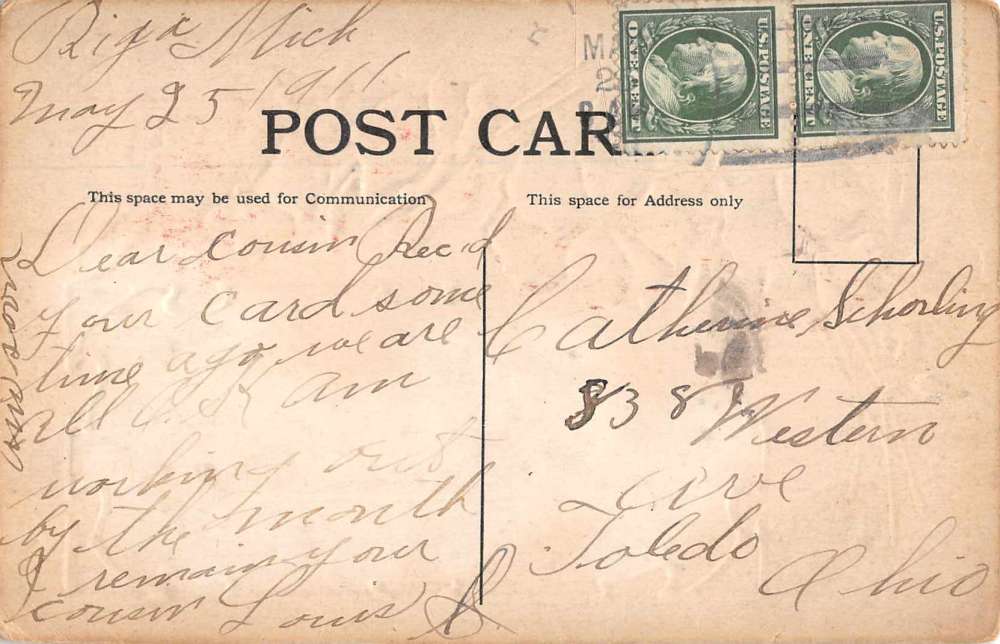 Riga Mich
May 25 1911
U.S. POSTAGE
ONE CENT
U.S. POSTAGE
ONE CENT
MA
2
POST CAR
This space may be used for Communication
This space for Address only
Dear Cousin Rec'd
your card some
time ago, we are
all O.K am
working out
by the month
I remain your
cousin Louis S.
ans soon
Catherine Schorling
838 Western
Ave
Toledo
Ohio